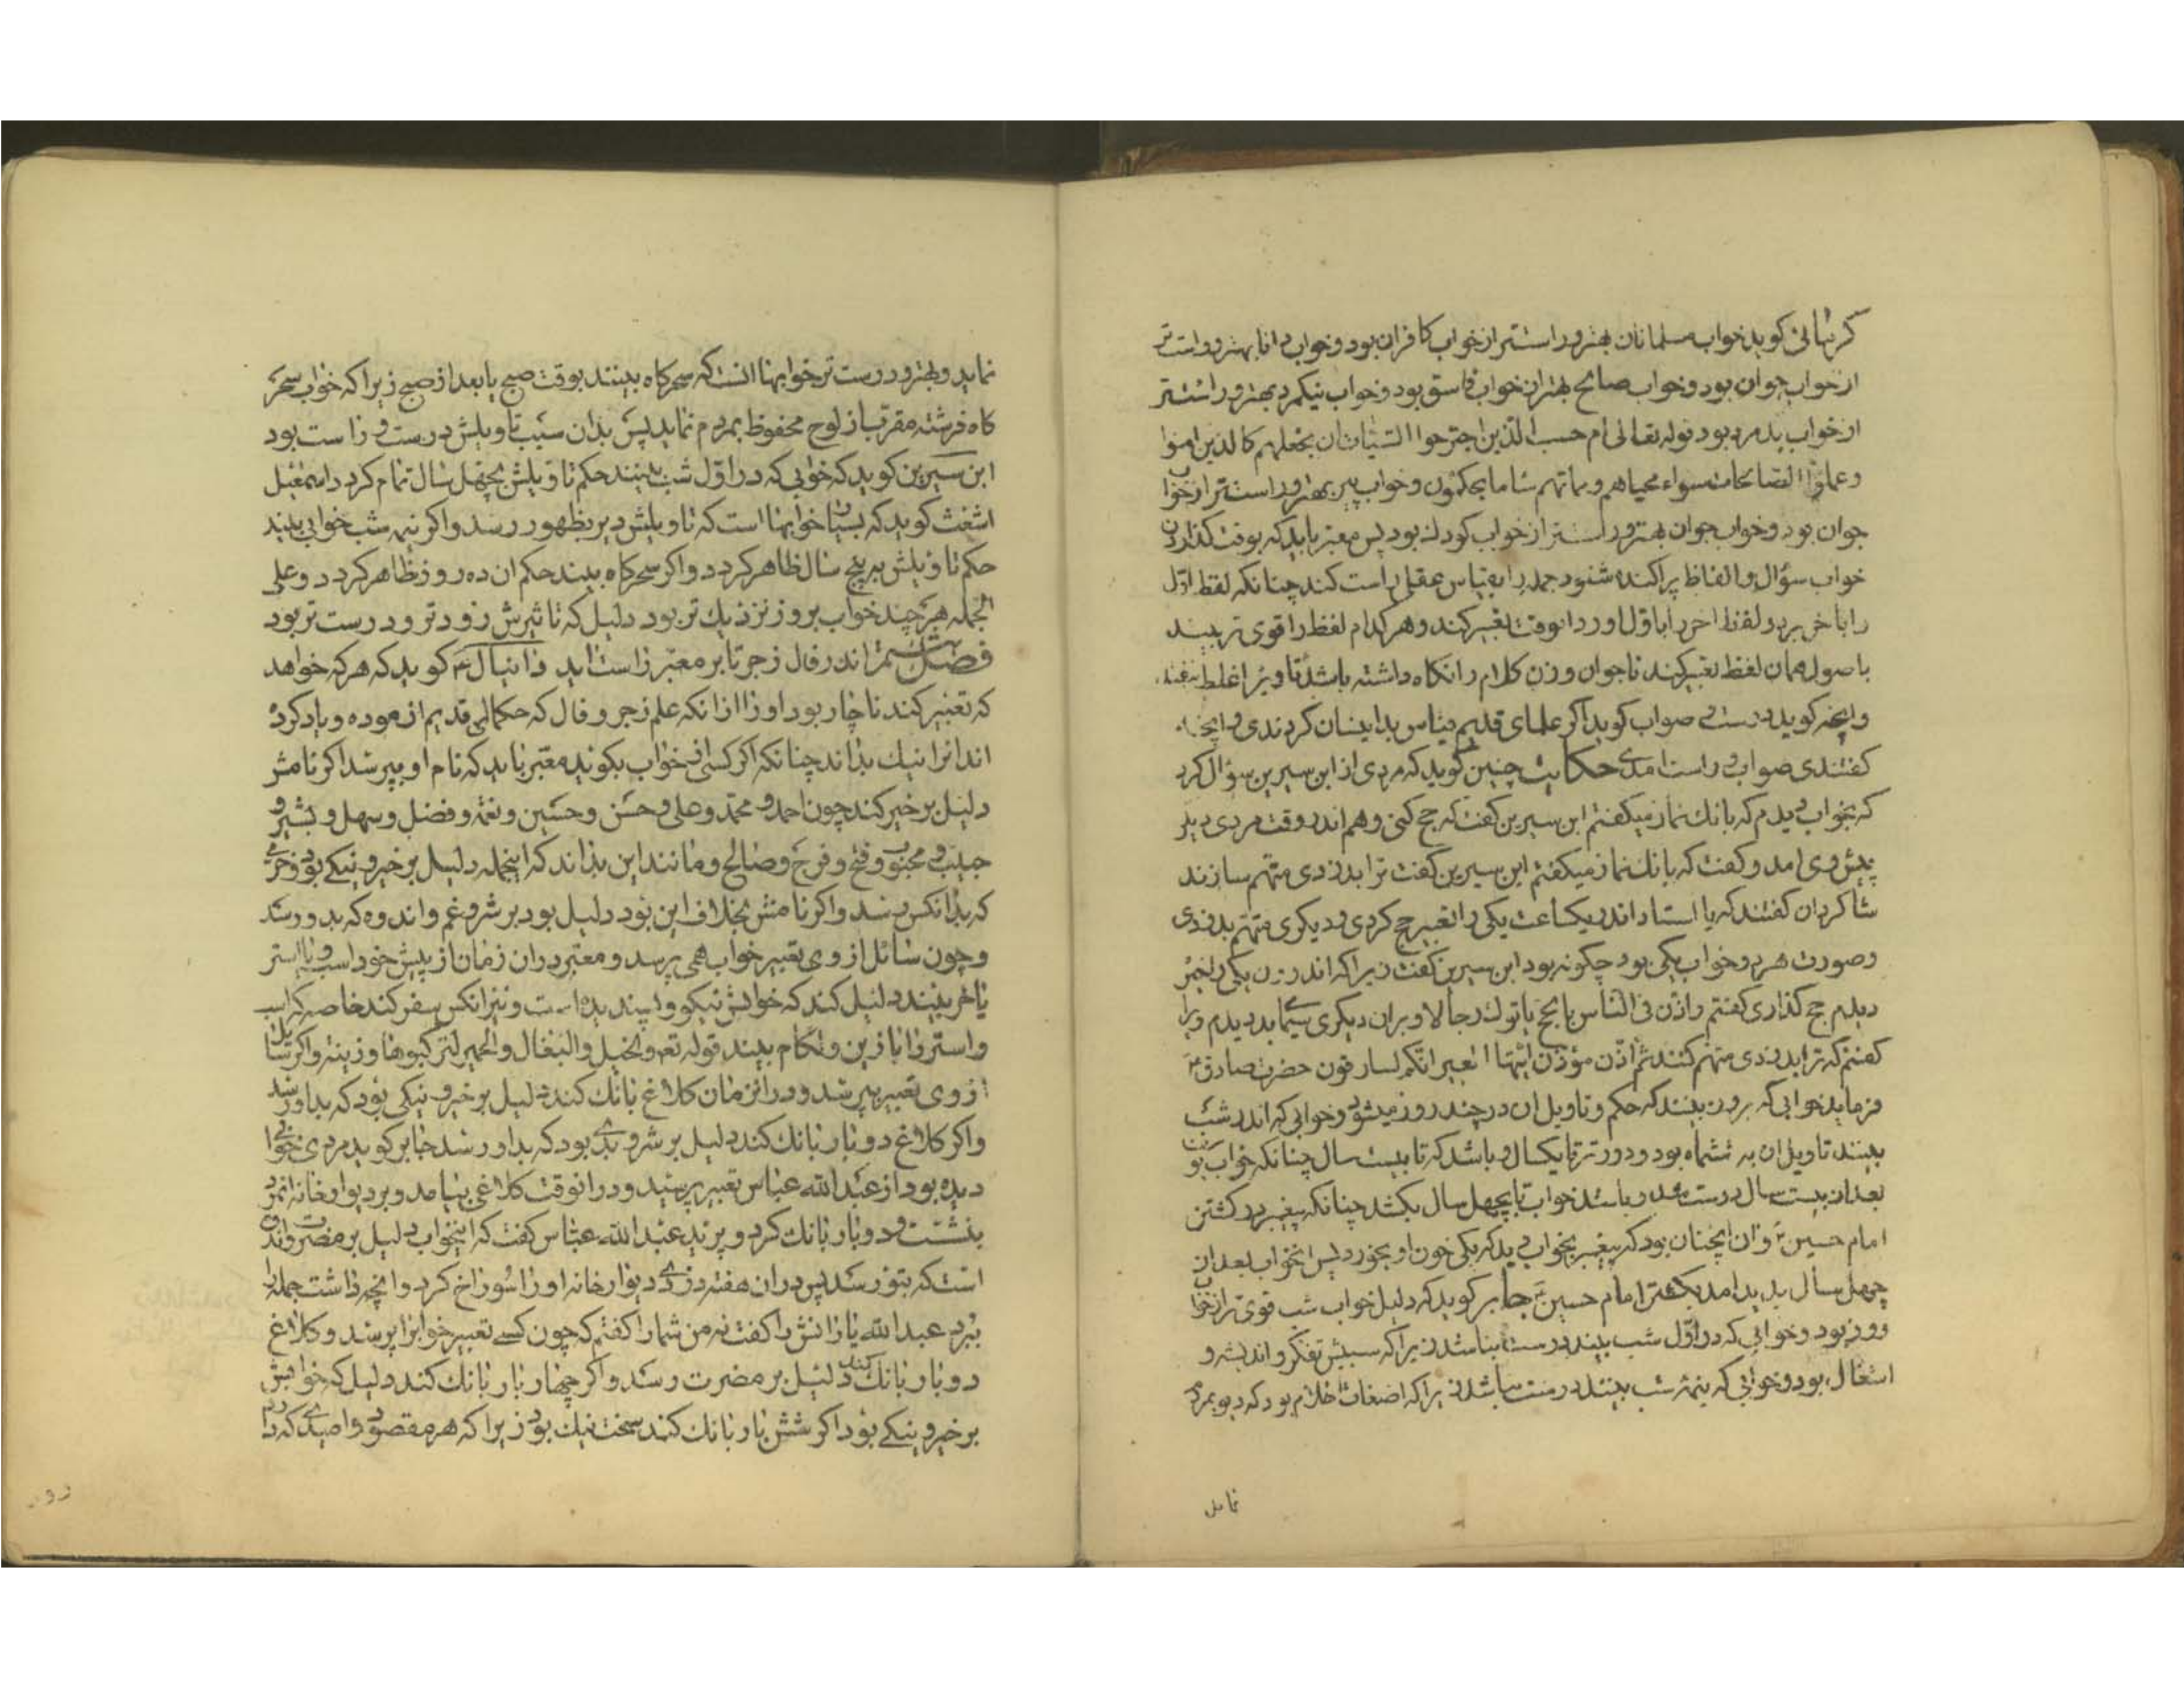 کرمانی کوید خواب مسلمانان بهتر و راستتر از خواب کافران بود و خواب دانا بهتر و راست تر
از خواب جوان بود و خواب صالح بهتر از خواب فاسق بود و خواب نیکمرد بهتر و راستتر
از خواب بدمرد بود قوله تعالی ام حسب الذین اجترحوا السیئات ان نجعلهم کالذین امنوا
و عملوا الصالحات سواء محیاهم و مماتهم ساء ما یحکمون و خواب پیر بهتر و راست تر از خواب
جوان بود و خواب جوان بهتر و راستتر از خواب کودک بود پس معبر باید که بوقت کذاردن
خواب سؤال و الفاظ پراکنده شنود جمله را بقیاس عقل راست کند چنانکه لفظ اول
را باخر برد و لفظ اخر را باول اورد انوقت تعبیر کند و هر کدام لفظ را قوی تر بیند
باصول همان لفظ تعبیر کند تا جوان وزن کلام را نکاه داشته باشد تا ویرا غلط نیفتد
و انچه کوید درست و صواب کوید اکر علمای قدیم قیاس بدانسان کردندی و انچه
کفتندی صواب و راست امدی حکایت چنین کوید که مردی از ابن سیرین سؤال کرد
که بخواب دیدم که بانک نماز میکفتم ابن سیرین کفت که حج کنی و هم اندر وقت مردی دیکر
پیش وی امد و کفت که بانک نماز میکفتم ابن سیرین کفت ترا بدزدی متهم سازند
شاکردان کفتند که یا استاد اندر یکساعت یکی را تعبیر حج کردی و دیکری متهم بدزدی
و صورت هر دو خواب یکی بود چکونه بود ابن سیرین کفت زیرا که اندرون یکی را خیر
دیدم حج کذاری کفتم و اذن فی الناس بالحج یاتوک رجالا و بران دیکری سیمای بد دیدم ویرا
کفتم که ترا بدزدی متهم کنند ثم اذن مؤذن ایتها العیر انکم لسارقون حضرت صادق ع
فرماید خوابی که بروز بینند که حکم و تاویل ان در چند روز میشود و خوابی که اندر شب
بینند تاویل ان به ششماه بود و دورتر تا یکسال و باشد که تا بیست سال چنانکه خواب یوسف
بعد از بیست سال درست شد و باشد خواب تا بچهل سال بکشد چنانکه پیغمبر در کشتن
امام حسین ع و ان اینچنان بود که پیغمبر بخواب دید که یکی خون او بخورد پس انخواب بعد از
چهل سال پدید امد بکشتن امام حسین ع جابر کوید که دلیل خواب شب قوی تر از خواب
روز بود و خوابی که در اول شب بیند درست نباشد زیرا که سبیش تفکر و اندیشه و
اشغال بود و خوابی که نیمه شب بینند درست نباشد زیرا که اضغاث احلام بود که دیو بمردم
نماید
نماید و بهتر و درست تر خوابها انست که سحرکاه بینند بوقت صبح یا بعد از صبح زیرا که خواب سحر
کاه فرشته مقرب از لوح محفوظ بمردم نماید پس بدان سبب تاویلش درست و راست بود
ابن سیرین کوید که خوابی که در اول شب بینند حکم تاویلش بچهل سال تمام کردد اسمعیل
اشعث کوید که بسیار خوابها است که تاویلش دیر بظهور رسد و اکر نیمه شب خوابی بیند
حکم تاویلش به پنج سال ظاهر کردد و اکر سحرکاه بیند حکم ان ده روز ظاهر کردد و علی
الجمله هر چند خواب بروز نزدیک تر بود دلیل که تاثیرش زودتر و درست تر بود
فصل ششم اندر فال زجر تا بر معبر راست اید دانیال ع کوید که هر که خواهد
که تعبیر کند ناچار بود او را از انکه علم زجر و فال که حکمای قدیم ازموده و یاد کرده
اند انرا نیک بداند چنانکه اکر کسی خواب بکوید معبر باید که نام او بپرسد اکر نامش
دلیل بر خیر کند چون احمد و محمد و علی و حسن و حسین و نعمه و فضل و سهل و بشیر و
حبیب و محبوب و فتح و فرج و صالح و مانند این بداند که اینجمله دلیل بر خیر و نیکی بود و خرمی
که بدانکس رسد و اکر نامش بخلاف این بود دلیل بود بر شر و غم و اندوه که بدو رسد
و چون سائل از وی تعبیر خواب همی پرسد و معبر دران زمان از پیش خود اسب و یا استر
یا خر بیند دلیل کند که خوابش نیکو و پسندیده است و نیز انکس سفر کند خاصه که اسب
و استر را با زین و لکام بیند قوله تعه و الخیل و البغال و الحمیر لترکبوها و زینة و اکر سائل
از وی تعبیر بپرسد و در انزمان کلاغ بانک کند دلیل بر خیر و نیکی بود که بداو رسد
و اکر کلاغ دو بار بانک کند دلیل بر شر و بدی بود که بداو رسد جابر کوید مردی خوابی
دیده بود از عبدالله عباس تعبیر پرسید و در انوقت کلاغی بیامد و بر دیوار خانه انمرد
بنشست و دو بار بانک کرد و پرید عبدالله عباس کفت که اینخواب دلیل بر مضرت و اندوه
است که بتو رسد پس دران هفته دزدی دیوار خانه او را سوراخ کرد و انچه داشت جمله را
ببرد عبدالله یارانش را کفت نه من شمارا کفتم که چون کسی تعبیر خوابرا پرسد و کلاغ
دو بار بانک کند دلیل بر مضرت رسد و اکر چهار بار بانک کند دلیل که خوابش
بر خیر و نیکی بود اکر شش بار بانک کند سخت نیک بود زیرا که هر مقصود و امیدی که دارد